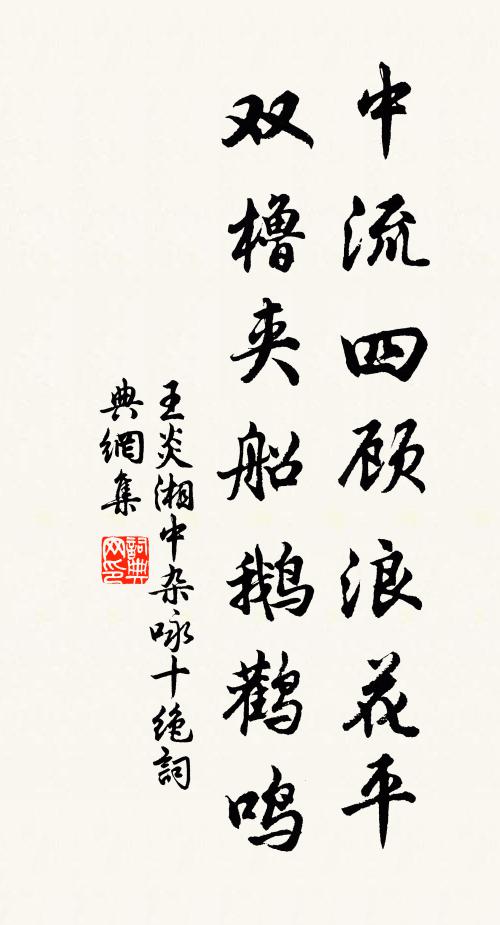 中流四顾浪花平
双橹夹船鹅鹳鸣
王炎湘中杂咏十绝詞
典網集
詞典
网印